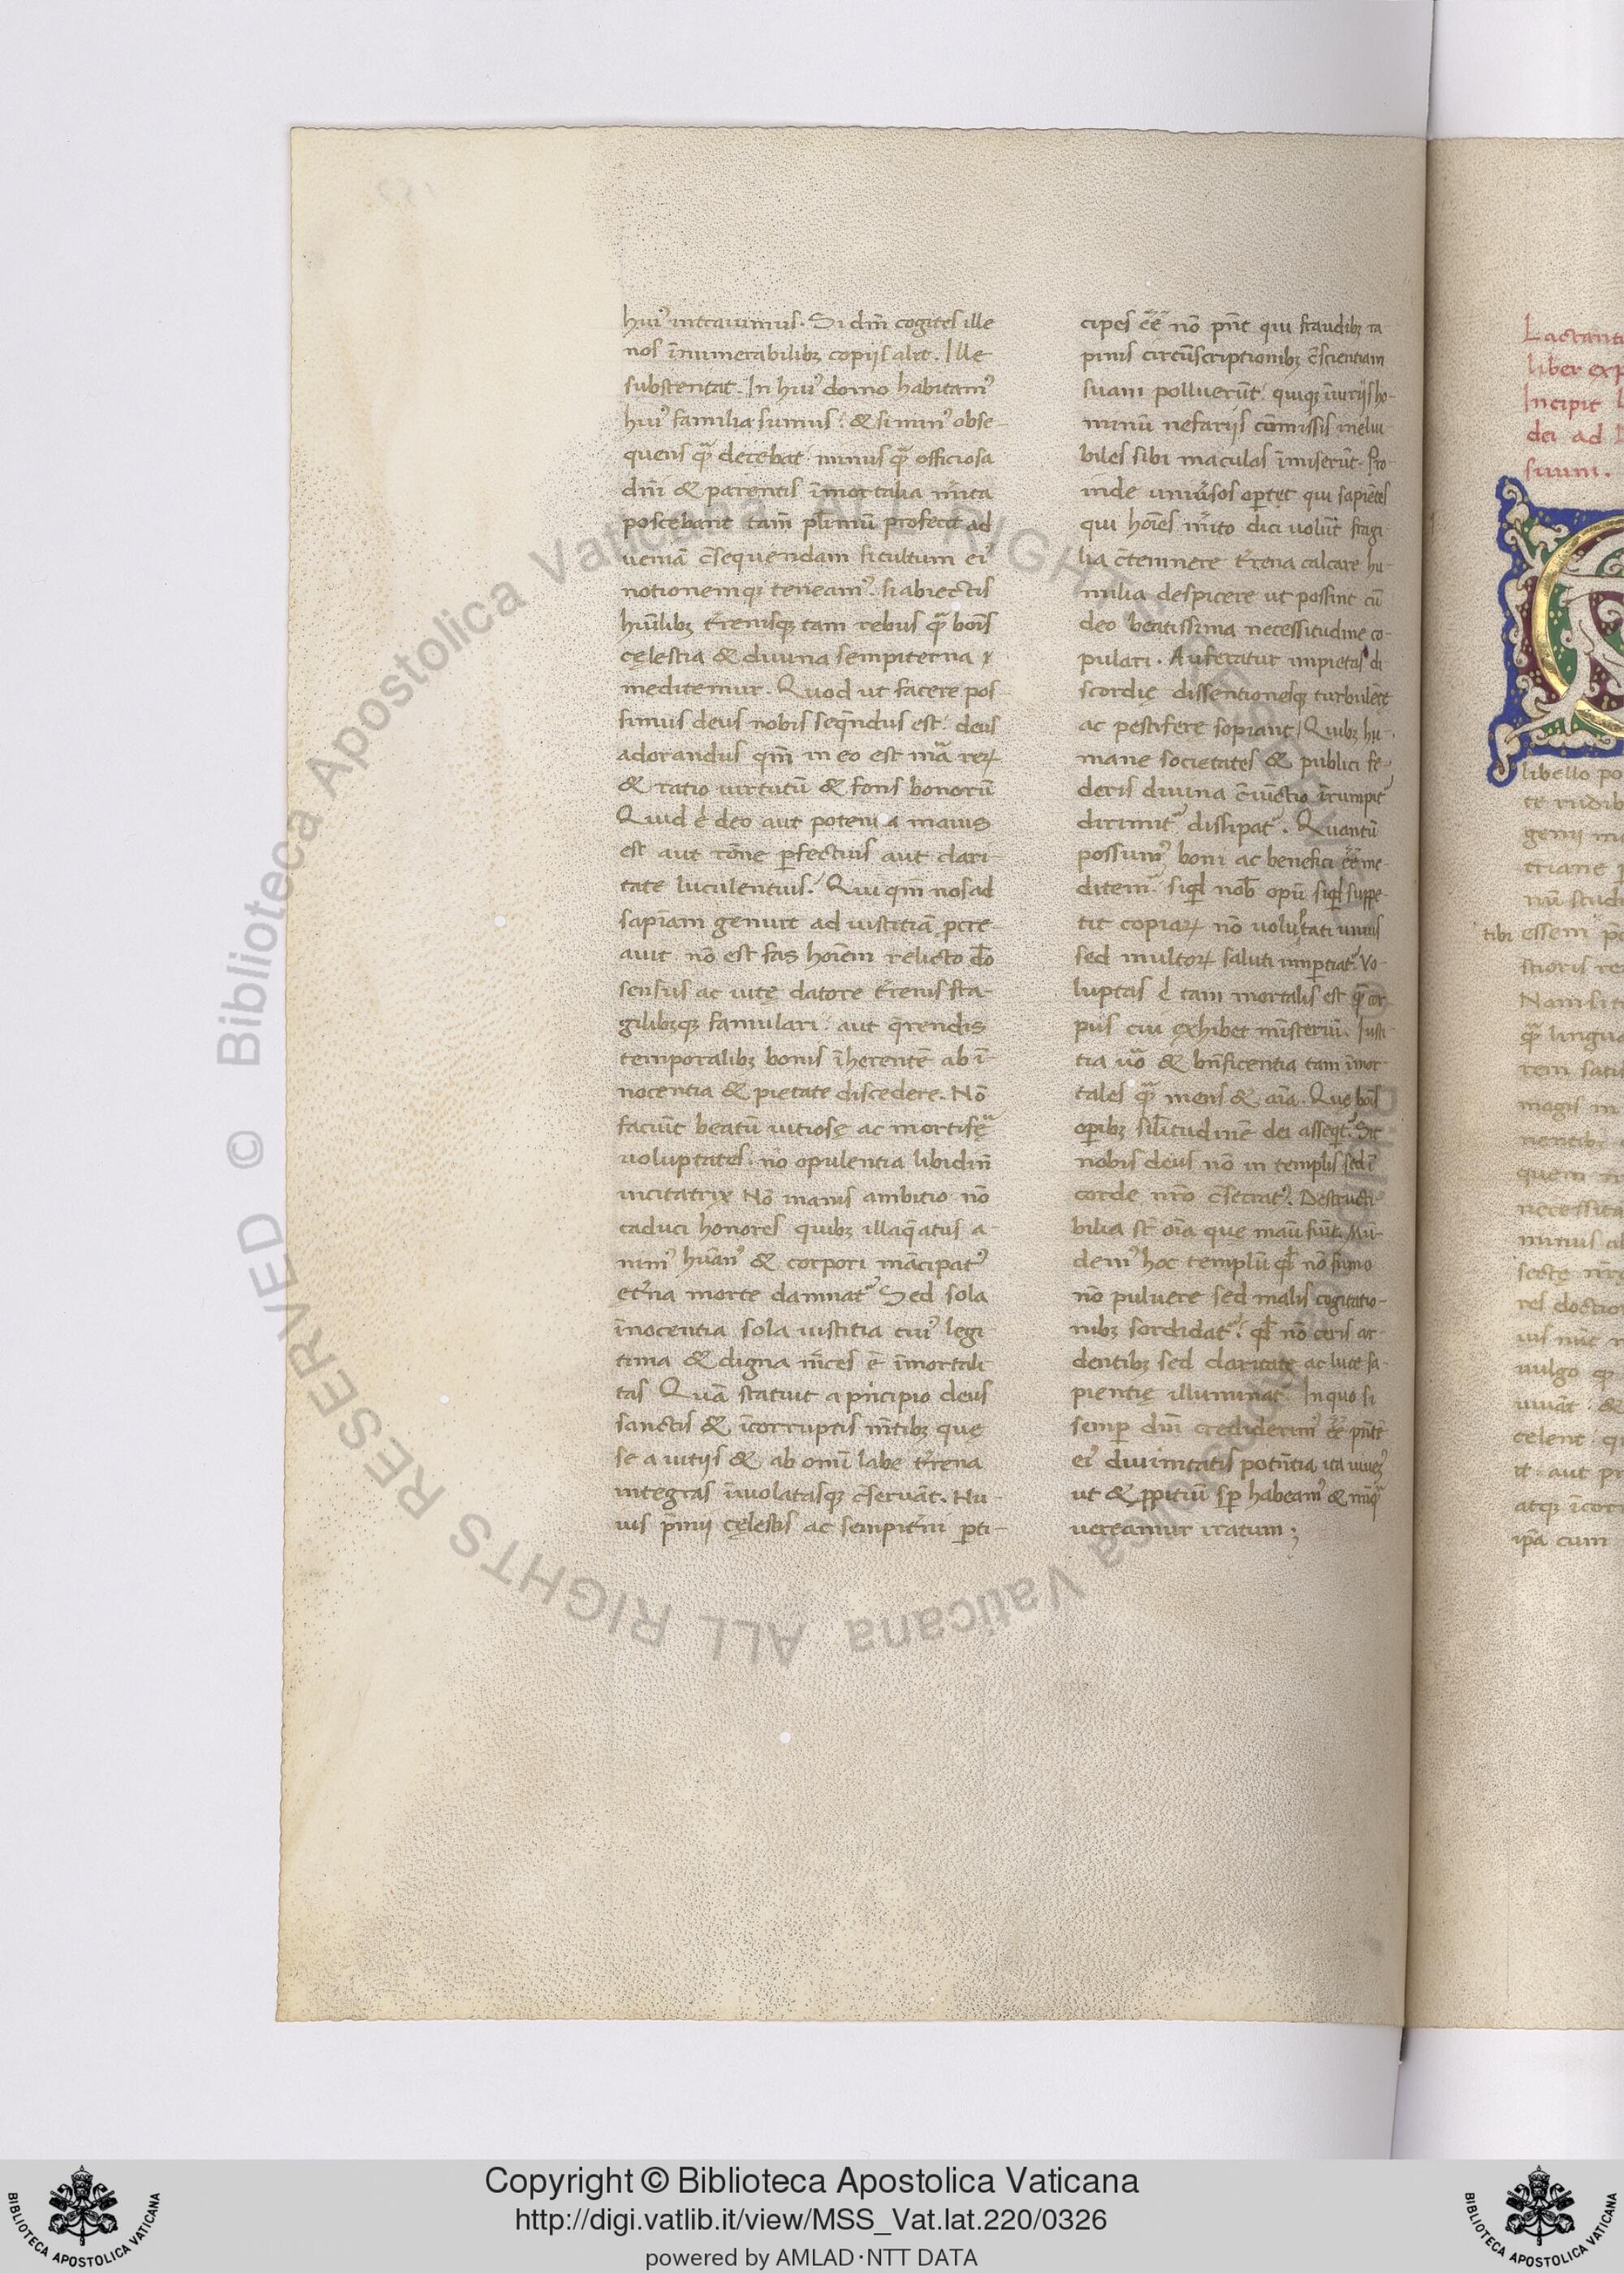 huiꝰ intrauimus. Si dn̄m cogites ille
nos īnumerabilibꝫ copijs alit. Ille
substentat. In huiꝰ domo habitamꝰ
huiꝰ familia sumus. & si minꝰ obse-
quens qͣ decebat minus qͣ officiosa
dn̄i & parentis īmortalia mʳita
poscebant tam̄ plrimū profecit ad
ueniā cͦsequendam si cultum eiꝰ
notionemqꝫ teneamꝰ. si abiectis
humīlibꝫ tʳrenisqꝫ tam rebus qͣ bonis
cęlestia & diuina sempiterna
meditemur. Quod ut facere pos
simus deus nobis seqn̄dus est. deus
adorandus qm̄ in eo est mͣa reꝝ
& ratio uirtutū & fons bonorū
Quid .n. deo aut potentia maius
est aut rōne ꝑfectius aut clari-
tate luculentius. Qui qm̄ nos ad
sapīam genuit ad iustitiā ꝓcre-
auit. nō est fas hoīem relicto dō
sensus ac uitę datore tʳrenis fra-
gilibꝫqꝫ famulari. aut qrendis
temporalibꝫ bonis īherentē ab ī-
nocentia & pietate discedere. Nō
faciūt beatū uitiosę ac mortifęͣ
uoluptates. nō opulentia libidin̄
incitatrix Nō inanis ambitio nō
caduci honores quibꝫ illaqͣatus a-
nimꝰ hūanꝰ & corpori mācipatꝰ
etʳna morte damnatᷣ Sed sola
īnocentia sola iustitia cuiꝰ legi
tima & digna mʳces ē īmortali
tas Quā statuit a pⁱncipio deus
sanctis & īcorruptis mn̄tibꝫ quę
se a uitijs & ab omī labe tʳrena
integras īuiolatasqꝫ cͦseruāt. Hu-
ius p̄mij cęlestis ac sempitʳni ꝑti-
cipes ēē nō pn̄t qui fraudibꝫ ra
pinis circūscriptionibꝫ cͦscientiam
suam polluerūt. quiqꝫ īiurijs ho-
minū nefarijs cōmissis inelui
biles sibi maculas īmiserūt. Pro
inde uniuʳsos oꝑtet qui sapiētes
qui hoīes mʳito dici uolūt fragi-
lia cͦtemnere tʳrena calcare hu-
milia despicere ut possint cū
deo beatissima necessitudine co-
pulari. Auferatur impietas di
scordię dissentionesqꝫ turbulēte
ac pestifere sopiant Quibꝫ hu-
mane societates & publici fe-
deris diuina cͦiūctio irrumpitᷣ
dirimitᷣ dissipatᷣ. Quantū
possumꝰ boni ac benefici ēē me-
ditemᷣ siqͩ nob̄ opū siqͩ suppe-
tit copiaꝝ nō uoluptati unius
sed multoꝝ saluti imꝑtiatᷣ Vo-
luptas .n. tam mortalis est qͣ cor
pus cui exhibet mīsteriū. Iusti
tia uͦo & bn̄ficentia tam īmor-
tales qͣ mens & aīa. Quę bōis
oꝑibꝫ silītudinē dei asseqtᷣ. Sit
nobis deus nō in templis sed ī
corde nr̄o cͦsecratꝰ. Destructi-
bilia st̄ oīa que manū fiūt. Mū-
demꝰ hoc templū qͩ nō fumo
nō puluere sed malis cogitatio-
nibꝫ sordidatᷣ. qͩ nō ceris ar-
dentibꝫ sed claritate ac luce sa-
pientię illuminatᷣ In quo si
semꝑ dn̄m crediderimꝰ ēē pn̄tē
eiꝰ diuinitatis potn̄tia ita uiuemꝰ
ut & ꝓpitiū sꝑ habeamꝰ & nūqͣ
uereamur iratum;
Lactanti
liber exp
Incipit l
dei ad
suum.
libello po
te rudib
genij me
triane
nū studi
tibi essem
stioris re
Nam si ti
qͣ lingua
rem satis
magis in
nentibꝰ
quem
necessita
minus
sectę nr̄e
res doctio
uis nūc
uulgo
uiuāt. &
celent qu
it. aut pr
atqꝫ īcor
ip̄a cum
Copyright © Biblioteca Apostolica Vaticana
http://digi.vatlib.it/view/MSS_Vat.lat.220/0326
powered by AMLAD·NTT DATA
BIBLIOTECA APOSTOLICA VATICANA
BIBLIOTECA APOSTOLICA VATICANA
© Biblioteca Apostolica Vaticana ALL RIGHTS RESERVED